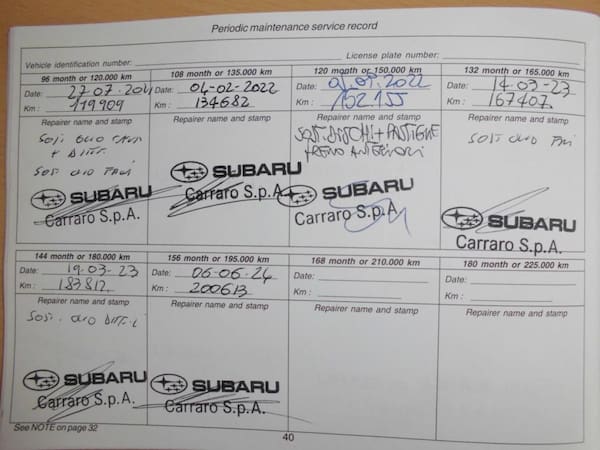 Periodic maintenance service record
Vehicle identification number: License plate number:
96 month or 120.000 km
Date:
Km: 119909
Repairer name and stamp
SOST. OLIO
SOST OLIO FRENI
SUBARU
Carraro S.p.A.
108 month or 135.000 km
Date: 04-02-2022
Km: 134682
Repairer name and stamp
SUBARU
Carraro S.p.A.
120 month or 150.000 km
Date:
Km: 152155
Repairer name and stamp
SOST. DISCHI + PASTIGLIE
FRENO ANTERIORI
SUBARU
Carraro S.p.A.
132 month or 165.000 km
Date: 14-03-23
Km: 167407
Repairer name and stamp
SOST OLIO FRENI
SUBARU
Carraro S.p.A.
144 month or 180.000 km
Date: 19-03-23
Km: 183812
Repairer name and stamp
SOST. OLIO
SUBARU
Carraro S.p.A.
156 month or 195.000 km
Date: 06-06-24
Km: 200613
Repairer name and stamp
SUBARU
Carraro S.p.A.
168 month or 210.000 km
Date:
Km:
Repairer name and stamp
180 month or 225.000 km
Date:
Km:
Repairer name and stamp
See NOTE on page 32
40